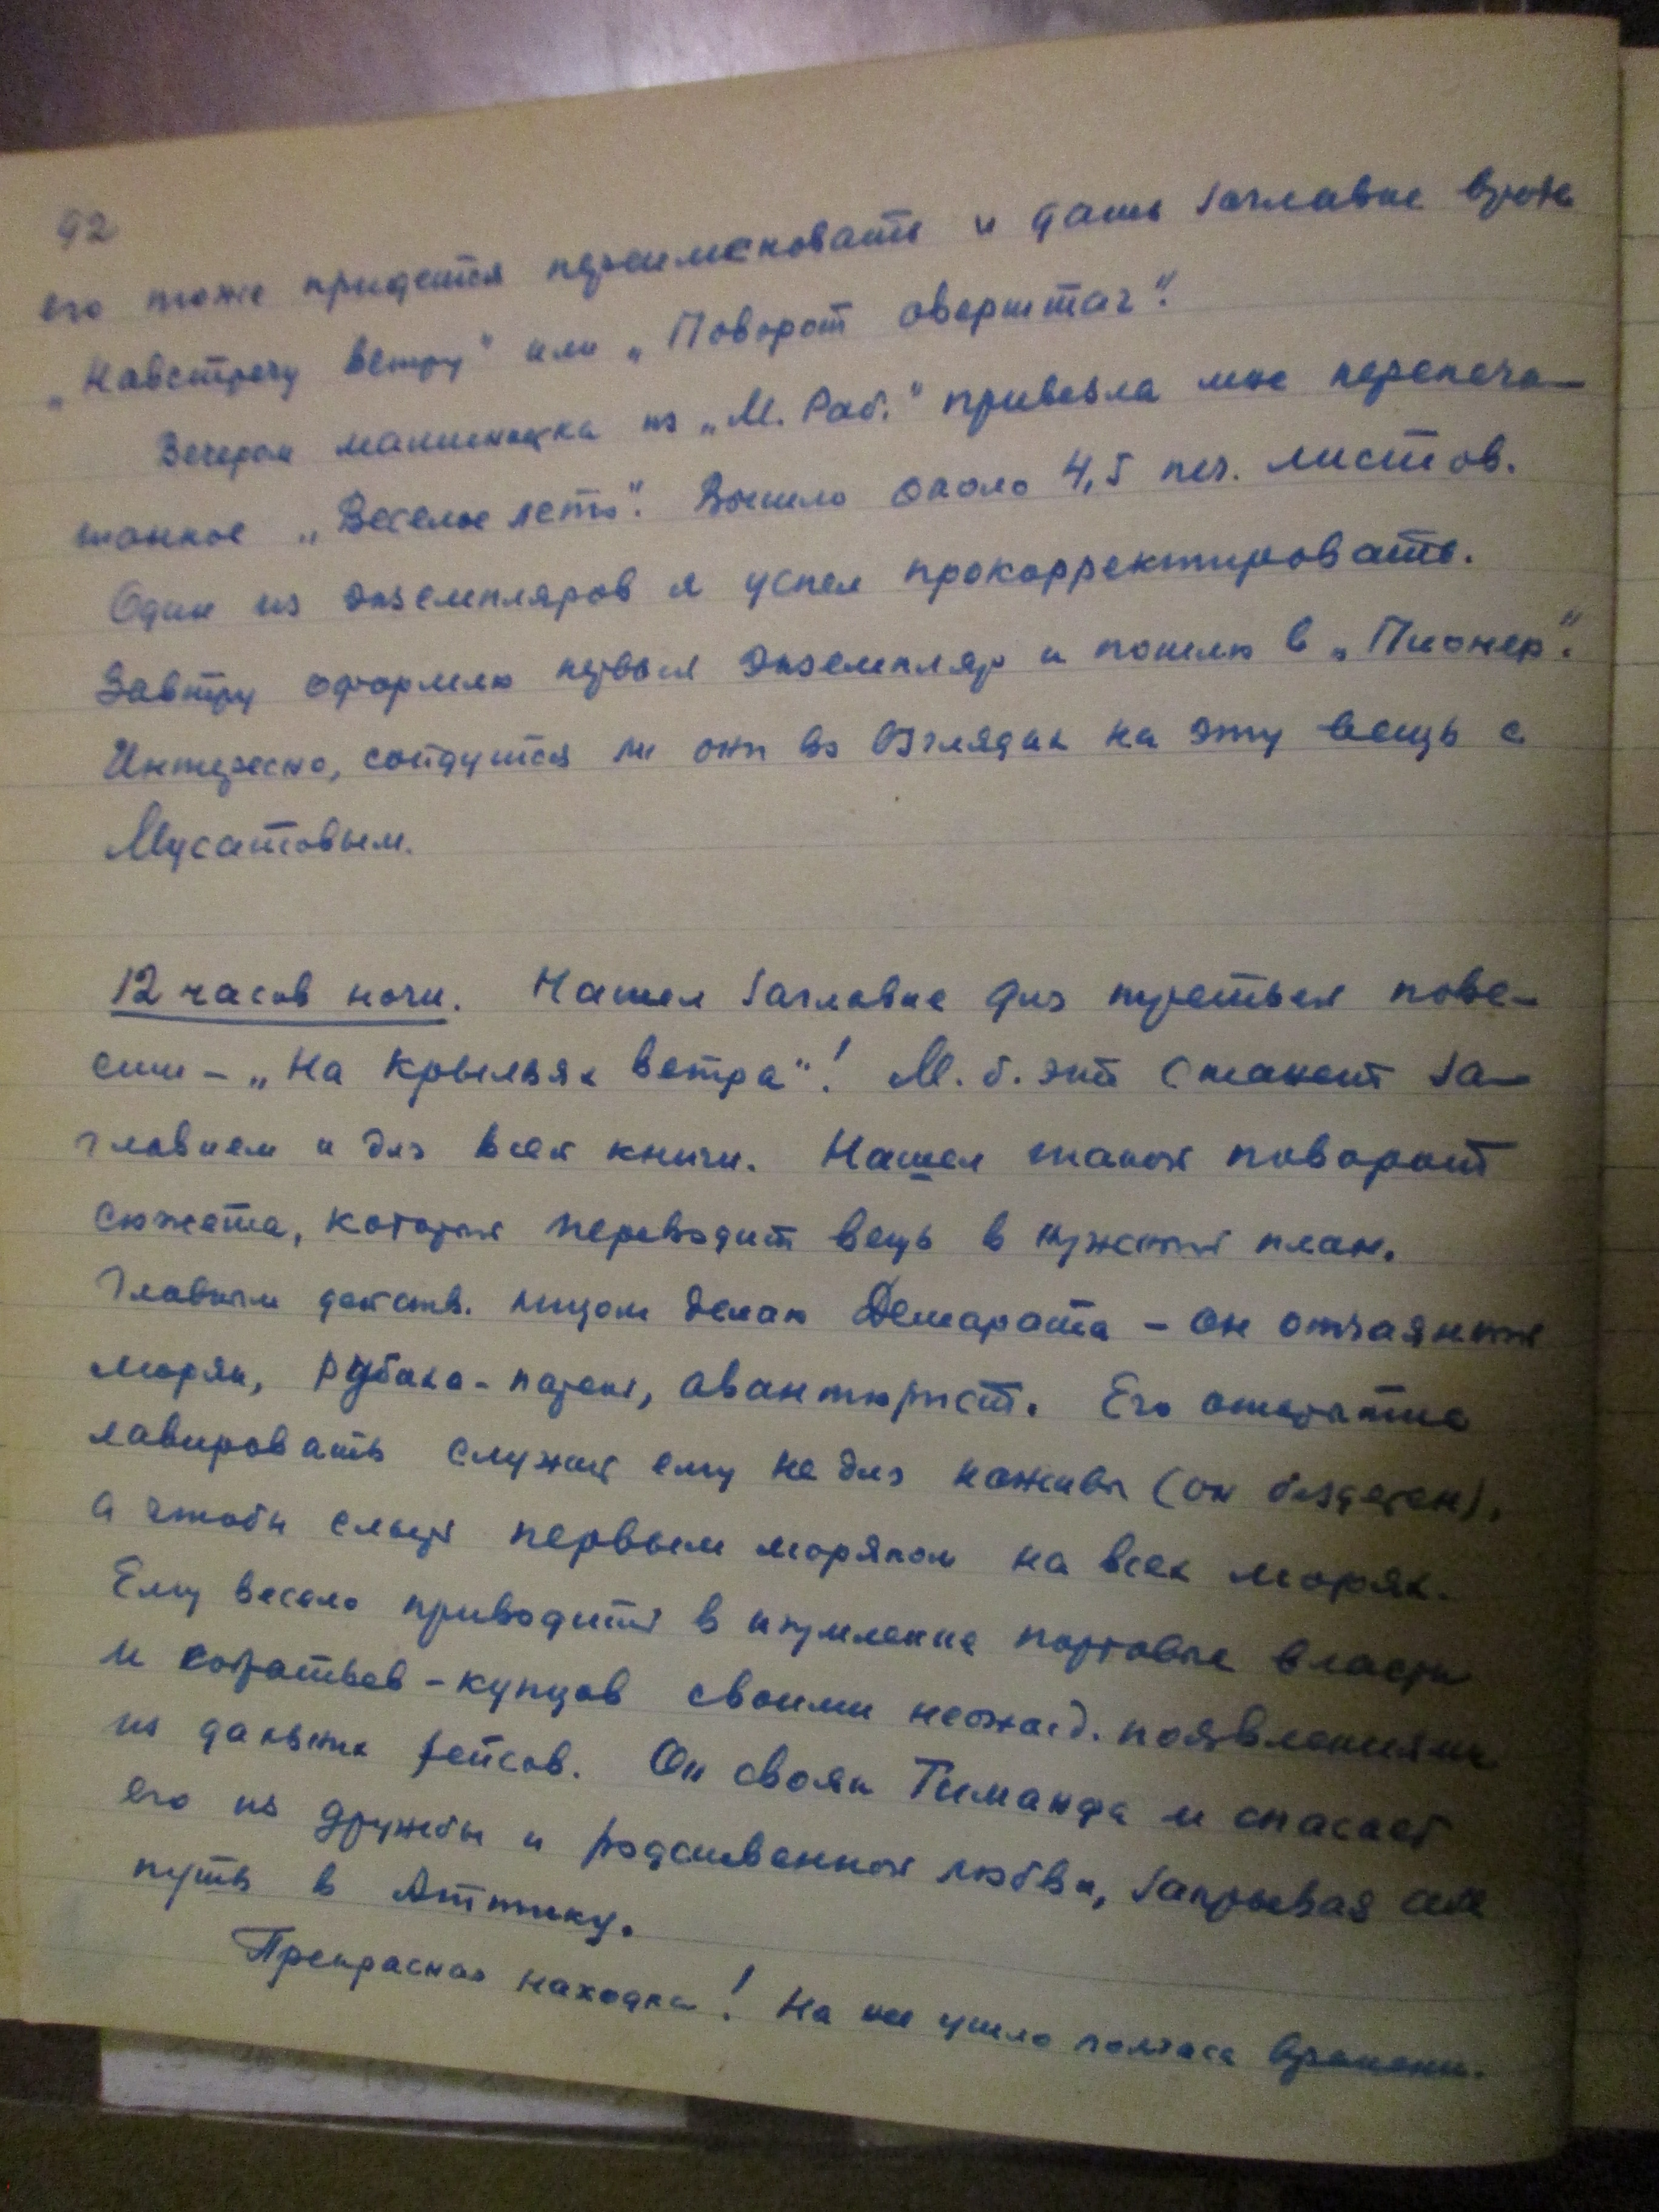 92
его тоже придется переименовать и дать заглавие вроде
„Навстречу ветру" или „Поворот оверштаг".
Вечером машинистка из „М. Раб." привезла мне перепеча-
танное „Веселое лето". Вышло около 4,5 печ. листов.
Один из экземпляров я успел прокорректировать.
Завтра оформлю первый экземпляр и пошлю в „Пионер".
Интересно, сойдутся ли они во взглядах на эту вещь с
Мусатовым.
12 часов ночи. Нашел заглавие для третьей пове-
сти – „На крыльях ветра"! М. б. это станет за-
главием и для всей книги. Нашел такой поворот
сюжета, который переводит вещь в нужный план.
Главным действ. лицом делаю Демарата – он отчаянный
моряк, рубака-парень, авантюрист. Его открытие
лавировать служит ему не для наживы (он бездетен),
а чтобы слыть первым моряком на всех морях.
Ему весело приводить в изумление портовые власти
и собратьев-купцов своими неожид. появлениями
из дальних рейсов. Он свояк Тиманфа и спасает
его из дружбы и родственной любви, закрывая
путь в Аттику.
Прекрасная находка! На нее ушло полчаса времени.